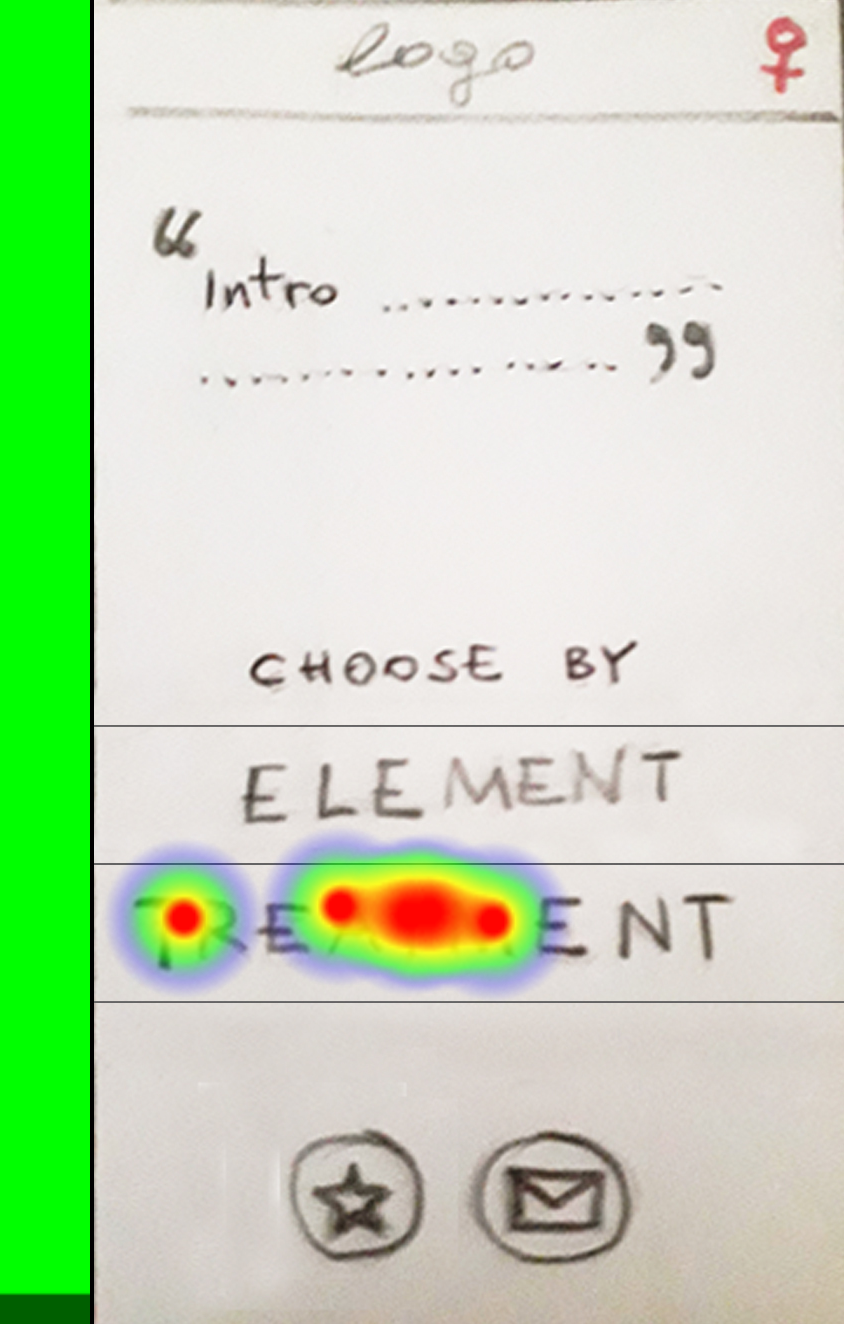 logo
“Intro ..............
..............”
CHOOSE BY
ELEMENT
TREATMENT